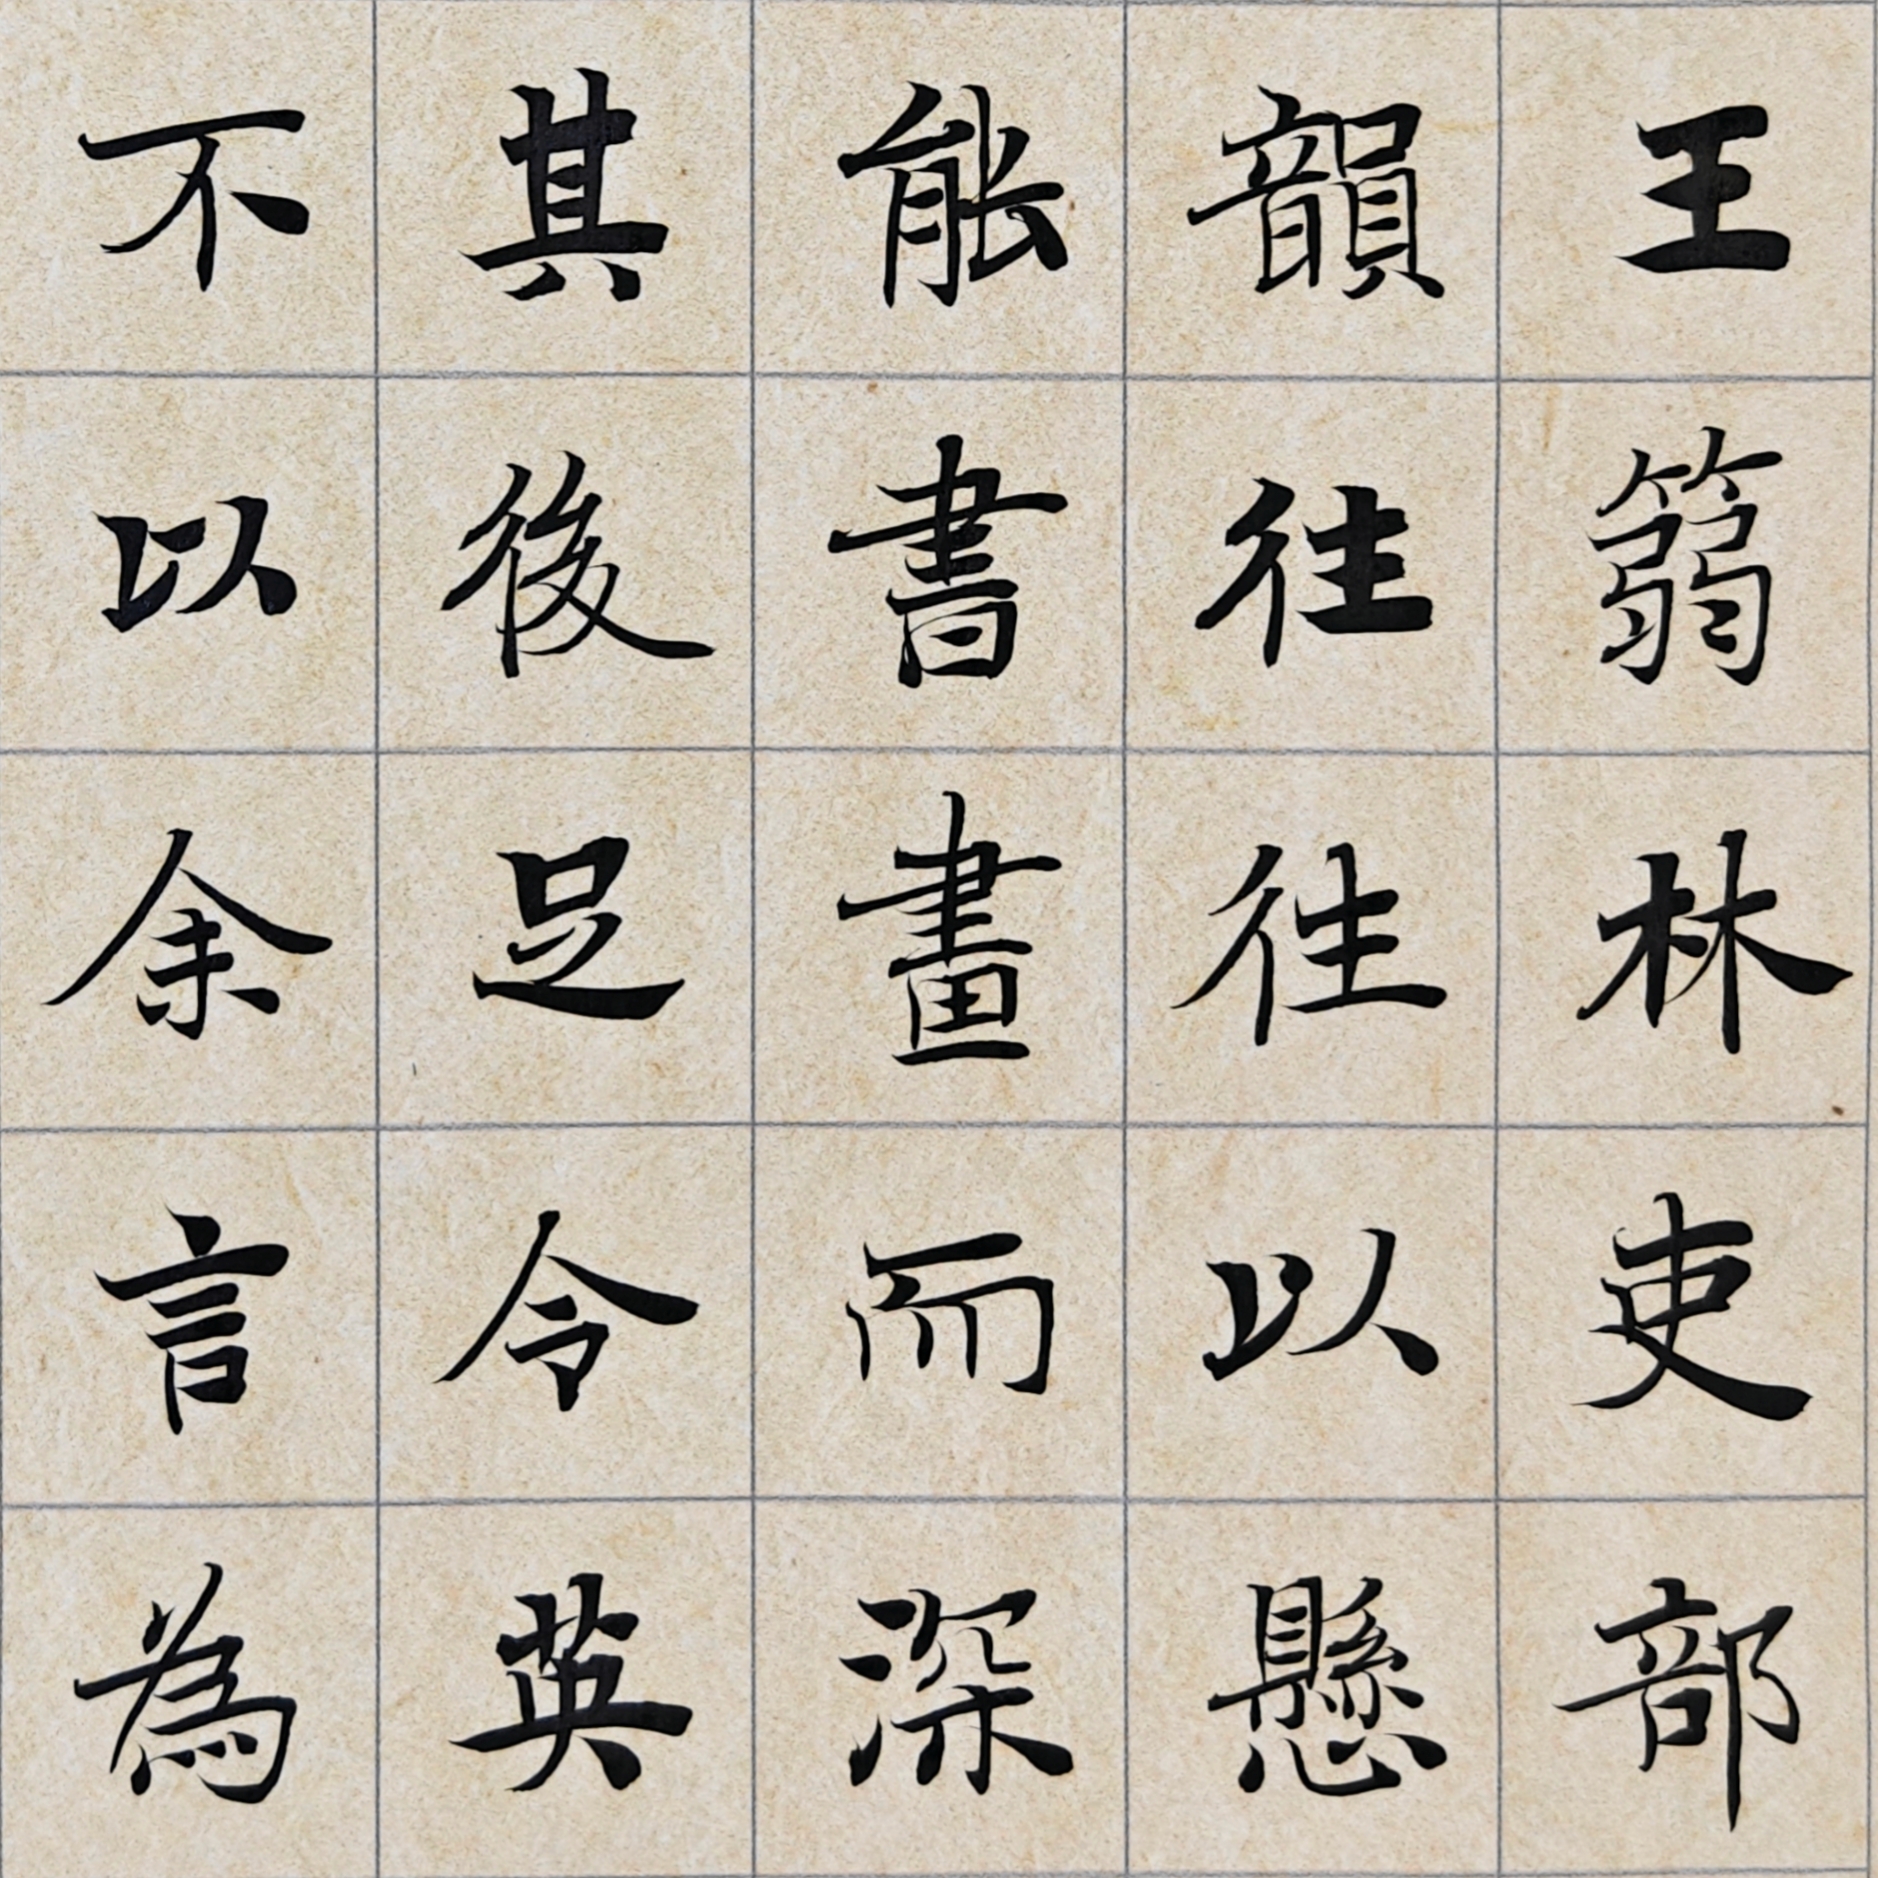 王篛林吏部
韻往往以懸
能書畫而深
其後足令英
不以余言為